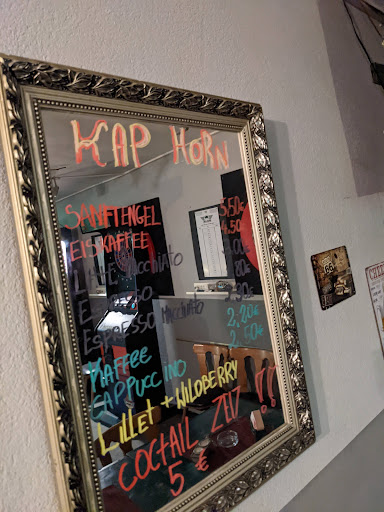 KAP HORN
SANFTENGEL 5,50€
EISKAFFEE 4,50€
LATTE MACCHIATO
ESPRESSO
ESPRESSO MACCHIATO
KAFFEE 2,20€
CAPPUCCINO 2,50€
LiLLET + WILDBERRY
COCTAIL ZEIT !!
5 €
66